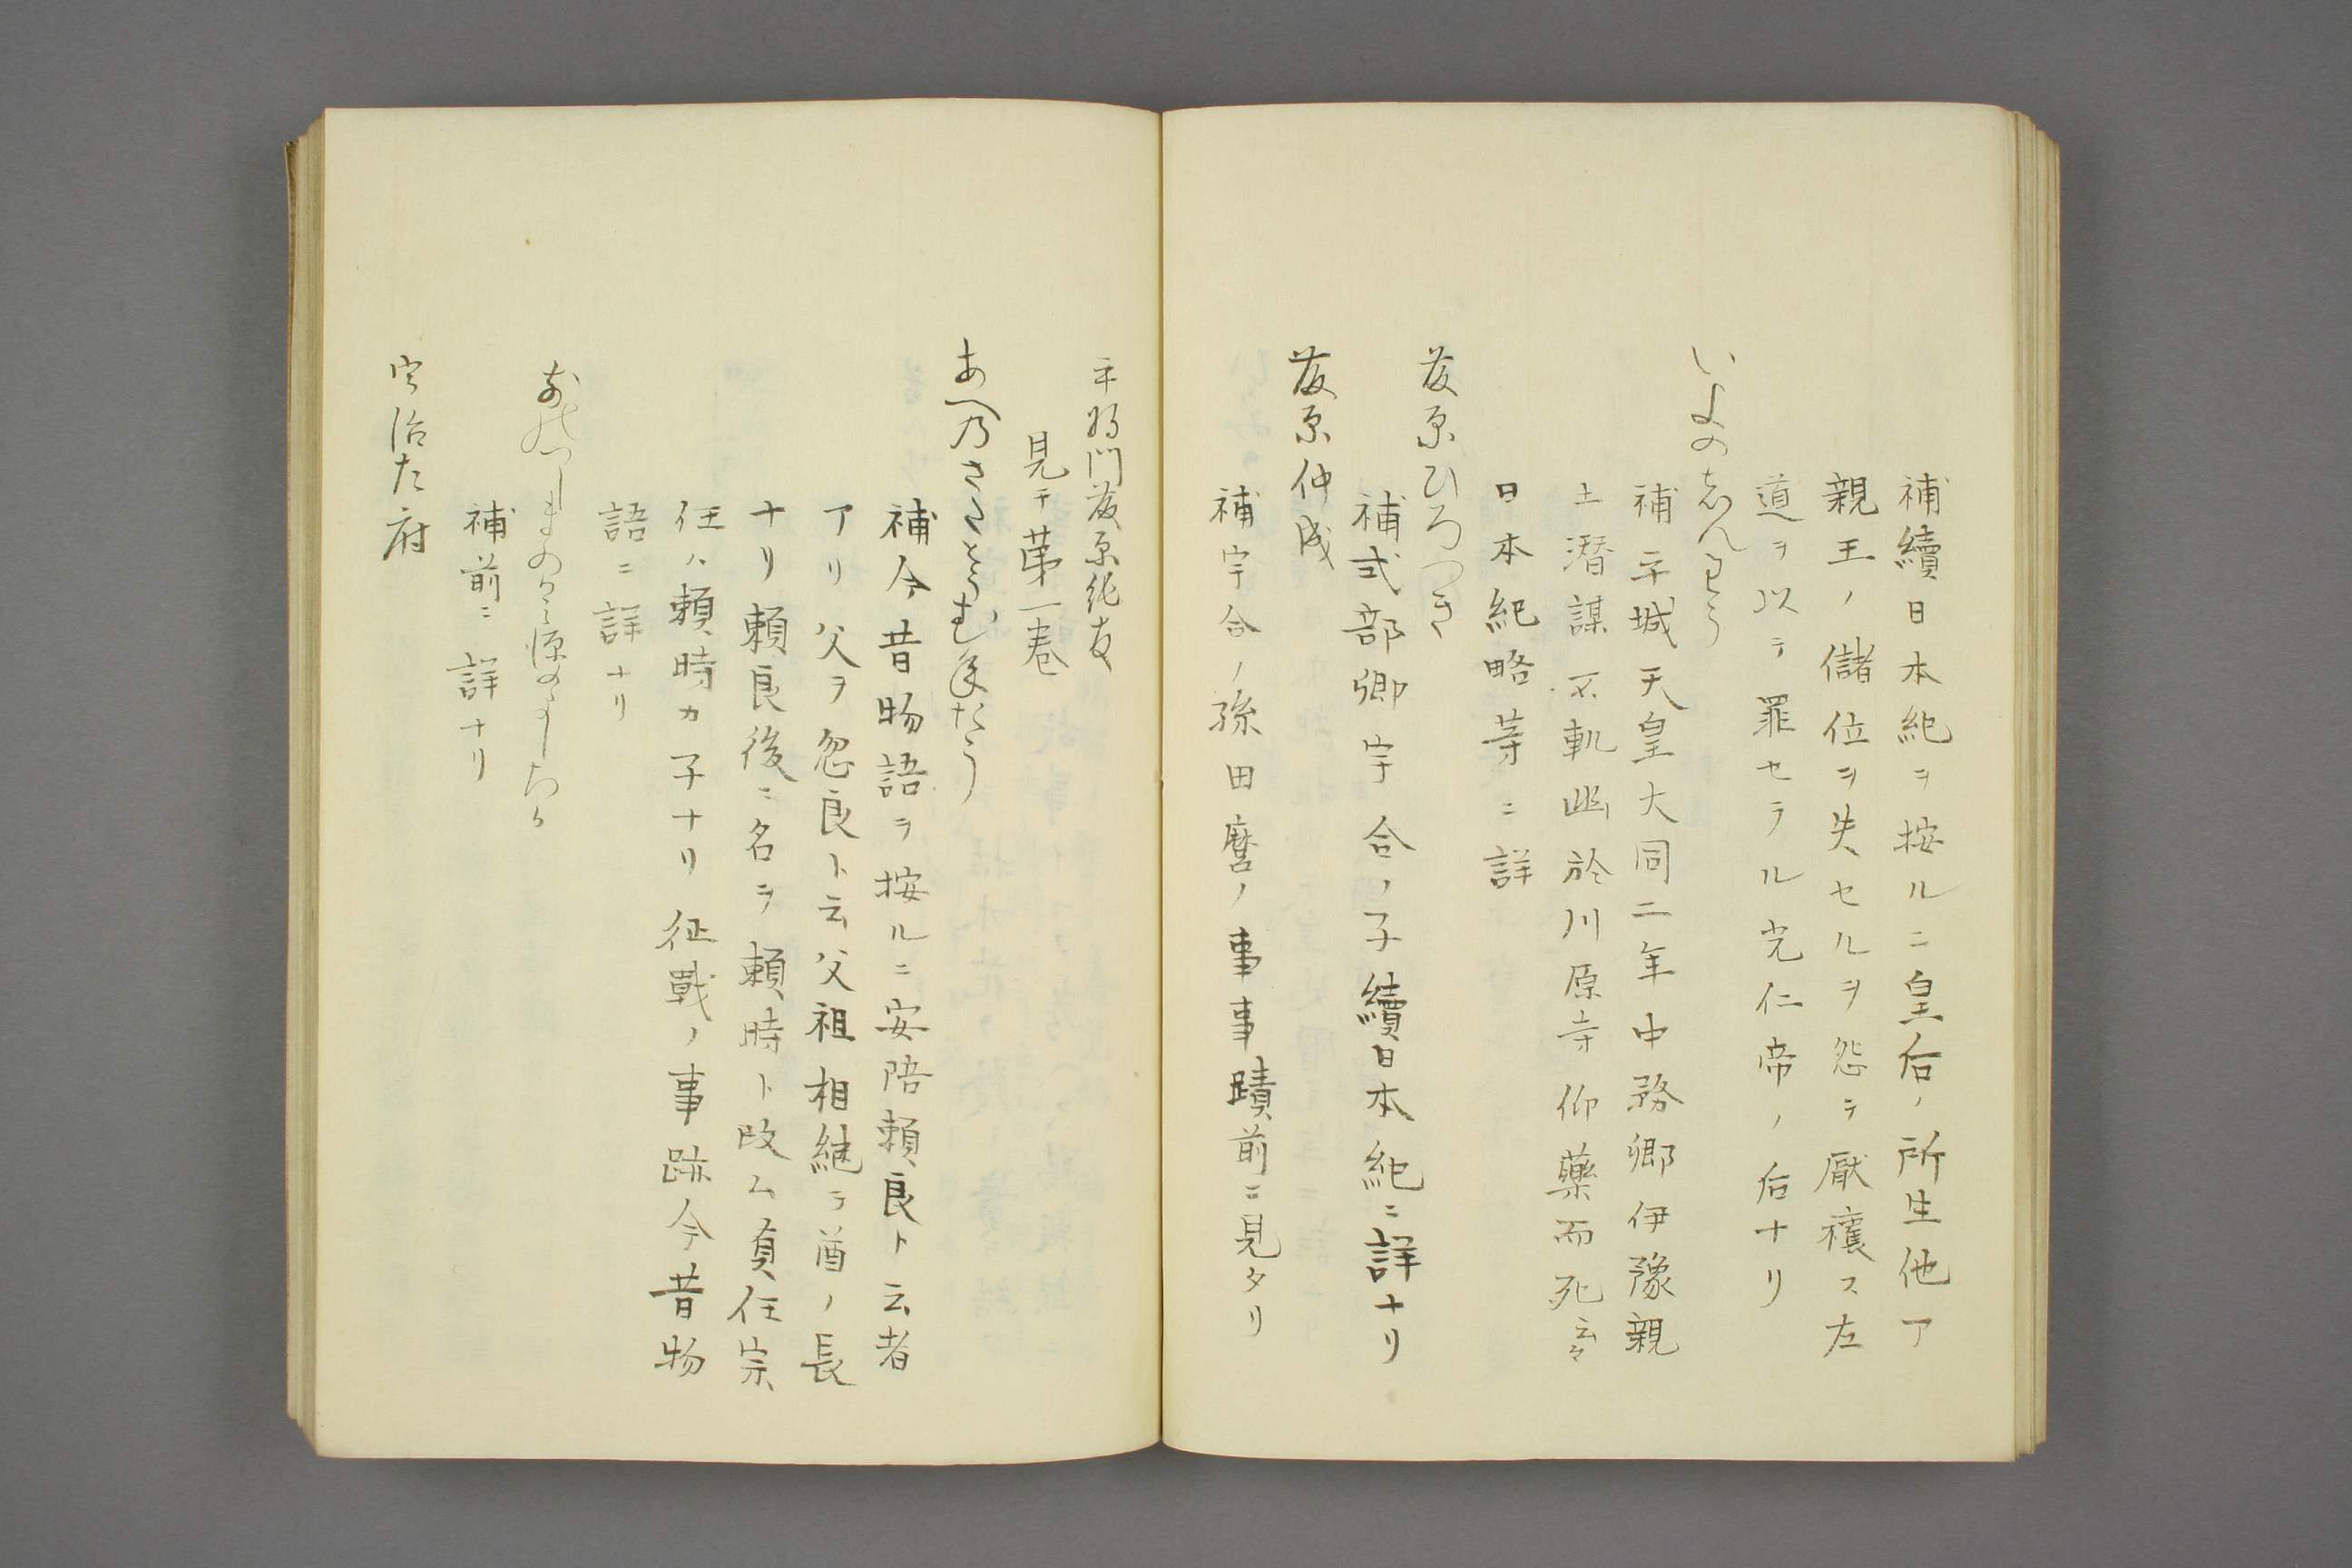 補續日本紀ヲ按ルニ皇后ノ所生他ア
親王ノ儲位ヲ失セルヲ怨テ厭穰ス左
道ヲ以テ罪セラル光仁帝ノ后ナリ
いよのしんわう
補平城天皇大同二年中務卿伊豫親
土潜謀不軌幽於川原寺仰藥而死云々
日本紀略等ニ詳
藤原ひろつき
補式部卿宇合ノ子續日本紀ニ詳ナリ
藤原仲成
補宇合ノ孫田麿ノ事事蹟前ニ見タリ
平将門藤原純友
見于第一巻
あへのさたとうむねたう
補今昔物語ヲ按ルニ安陪頼良ト云者
アリ父ヲ忽良ト云父祖相継テ酋ノ長
ナリ頼良後ニ名ヲ頼時ト改ム貞任宗
任ハ頼時カ子ナリ征戰ノ事跡今昔物
語ニ詳ナリ
つしまのかみ源のよしちか
補前ニ詳ナリ
宇治左府